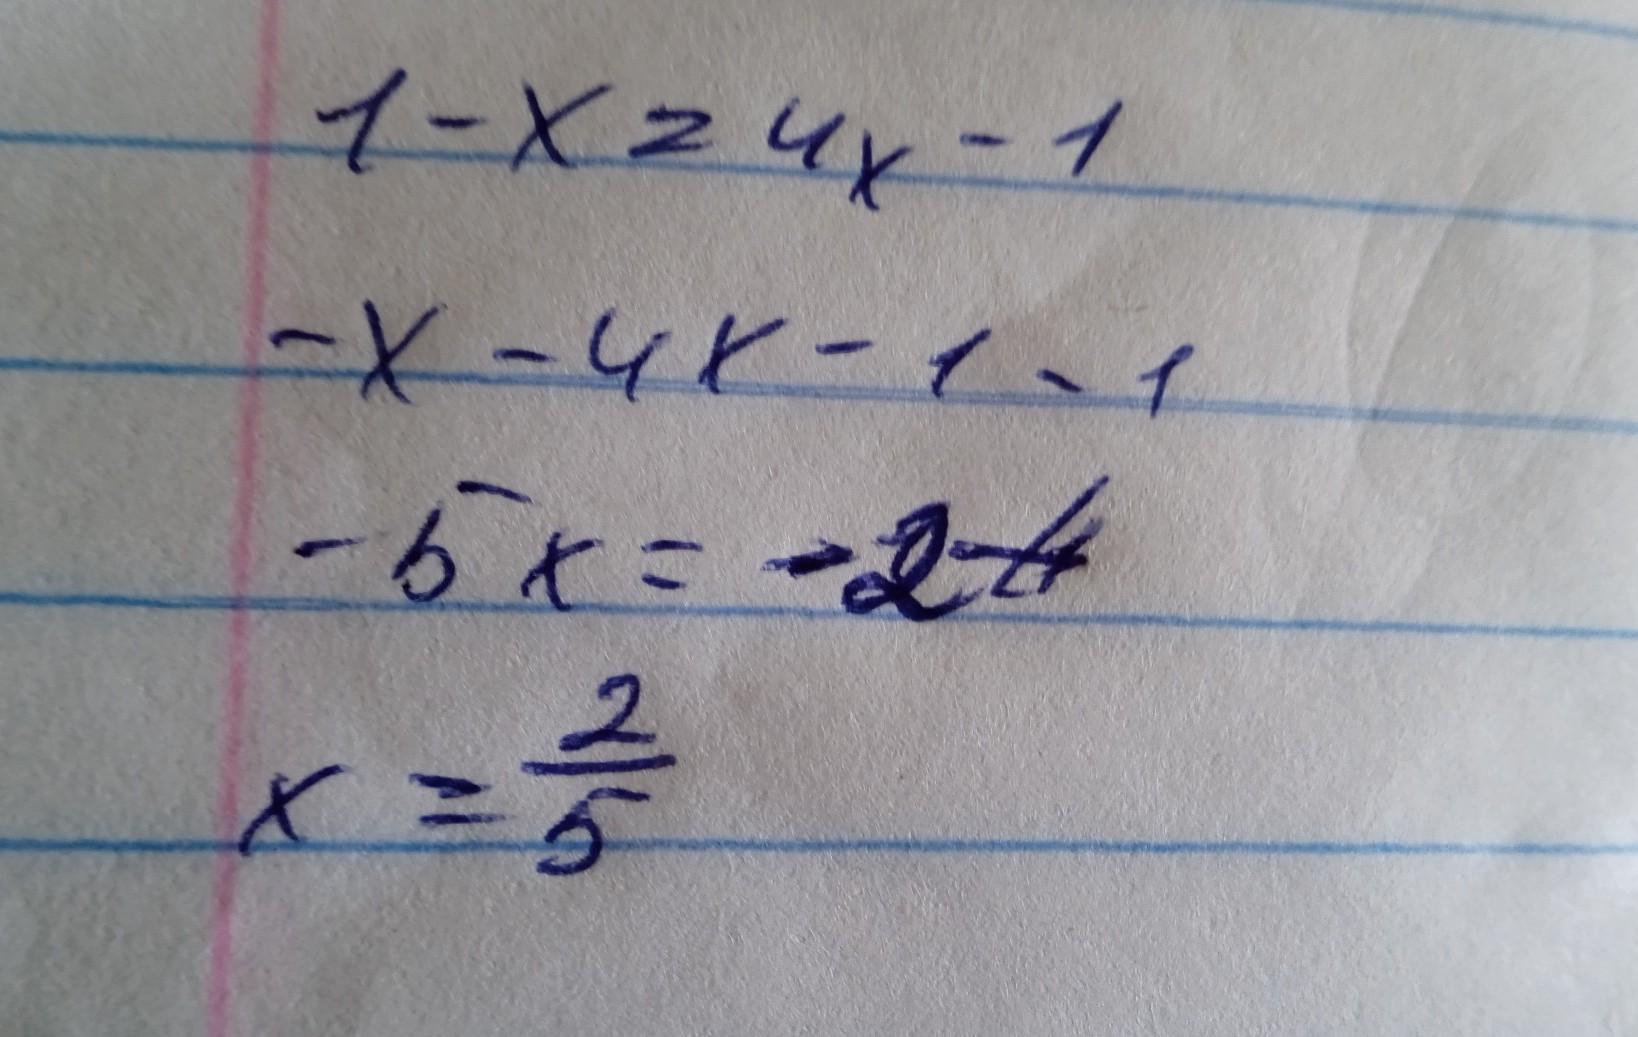 1 - x = 4x - 1
-x - 4x - 1 - 1
-5x = -2
x = 2/5